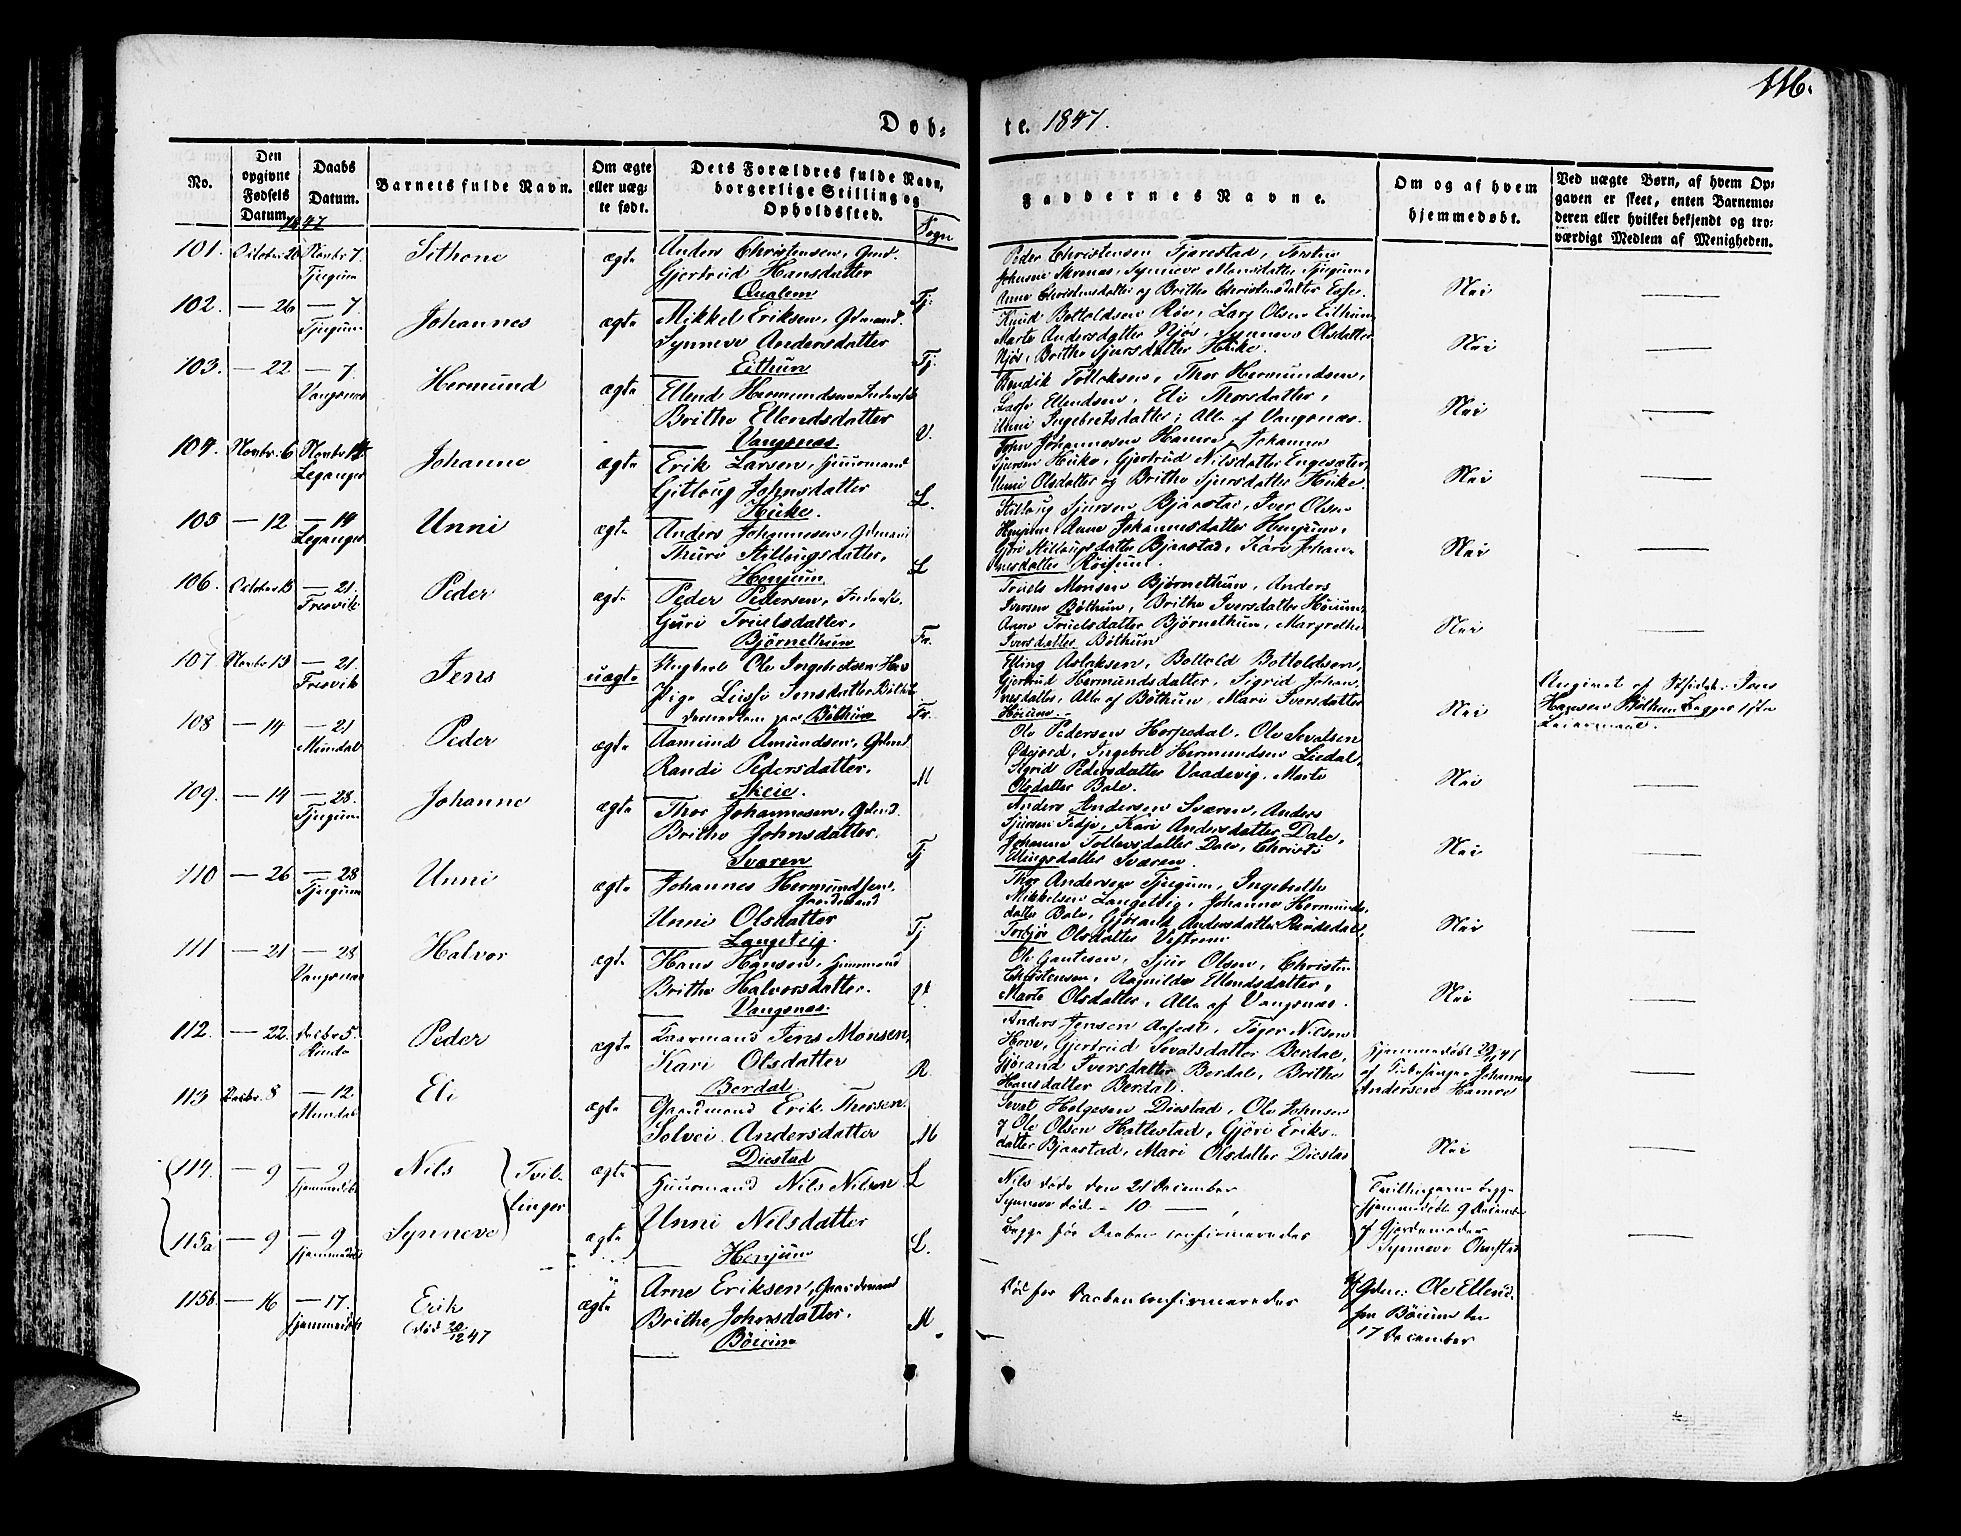 116.
Døb-
te. 1847.
No.
Den opgivne Fødsels Datum.
Daabs Datum.
1847
Barnets fulde Navn.
Om ægte eller uæg-te født.
Dets Forældres fulde Navn, borgerlige Stilling og Opholdssted.
Sogn
Faddernes Navne.
Om og af hvem hjemmedøbt.
Ved uægte Børn, af hvem Op-
gaven er skeet, enten Barnemo-
deren eller hvilket bekjendt og tro-
værdigt Medlem af Menigheden.
101. October 20 Novbr 7. Tjugum
ægte
Anders Christensen, Gmd.
Gjertrud Hansdatter
Qualem
Tj:
Peder Christensen Fjærestad,
Anne Christensdatter og Brithe Christensdatter Esse.
Nei
102. — 26 — 7. Tjugum
Johannes
ægte
Mikkel Eriksen, Gdmand.
Synneve Andersdatter
Eithun
Tj.
Knud Bottoldsen Røv, Lars Olsen Eithun
Marte Andersdatter Njøs, Synneve Olsdatter
Njøs, Brithe Sjursdatter Huke.
Nei
103. — 22 — 7. Vangsnæs
Hermund
ægte
Ellend Hermundsen
Brithe Ellendsdatter
Vangsnæs.
V.
Bendik Tollaksen, Thor Hermundsen,
Lasse Ellendsen, Eli Thorsdatter,
Unni Ingebretsdatter; Alle af Vangsnæs.
Nei
104. Novbr. 6 Novbr 14 Leganger
Johanne
ægte
Erik Larsen, Huusmand
Gitlaug Johnsdatter
Huke.
L.
John Johannesen Hamre, Johannes
Sjursen Huke, Gjertrud Nilsdatter Engesæter,
Unni Olsdatter og Brithe Sjursdatter Huke.
Nei
105 — 12 — 14 Leganger
Unni
ægte
Anders Johannesen, Gdmand
Thuri Stillaugsdatter,
Henjum
L
Stillaug Sjursen Bjaastad, Iver Olsen
Henjum, Anne Johannesdatter Henjum,
Gjøri Stillaugsdatter Bjaastad, Kari Johan-
nesdatter Røisum.
Nei
106. October 15 — 21. Fresvik
Peder
ægte
Peder Pedersen,
Guri Truelsdatter,
Bjørnethun
Fr.
Truels Monsen Bjørnethun, Anders
Iversen Bøthun, Brithe Iversdatter Høium,
Anne Truelsdatter Bjørnethun, Margrethe
Iversdatter Bøthun
Nei
107 Novbr 13 — 21. Fresvik
Jens
uægte
Ungkarl Ole Ingebretsen
Pige Lisse Jensdatter
Bøthun
Fr.
Elling Aslaksen, Bottold Bottoldsen,
Gjertrud Hermundsdatter, Sigrid Johan-
nesdatter, Alle af Bøthun, Mari Iversdatter
Høium.
Nei
Angivet af
Hansen Bøthun Begges 1ste
Leiermaal.
108 — 14 — 21 Mundal
Peder
ægte
Aamund Amundsen, Gdmd.
Randi Pedersdatter.
Skeie.
M
Ole Pedersen Horpedal, Ole Sevatsen
Øygjord, Ingebret Hermundsen Liedal,
Sigrid Pedersdatter Vaadevig, Marte
Olsdatter Bale.
Nei
109. — 14 — 28. Tjugum
Johanne
ægte
Thor Johannesen, Gdmd.
Brithe Johnsdatter.
Sværen
Tj
Anders Andersen Sværen, Anders
Sjursen Fedje, Kari Andersdatter Dale,
Johanne Tollevsdatter Dale, Christi
Ellingsdatter Sværen.
Nei
110 — 26 — 28 Tjugum
Unni
ægte
Johannes Hermundsen,
Gaardmand
Unni Olsdatter
Langeteig.
Tj
Thor Andersen Tjugum, Ingebrethe
Mikkelsen Langeteig, Johanne Hermunds-
datter Bale, Gjørand Andersdatter
Torbjør Olsdatter Vestreim
Nei
111 — 21 — 28 Vangsnæs
Halvor
ægte
Hans Hansen, Huusmand
Brithe Halvorsdatter.
Vangsnæs.
V.
Ole Gautesen, Sjur Olsen, Christen
Christensen, Ragnilde Ellendsdatter,
Marte Olsdatter, Alle af Vangsnæs.
Nei
112. — 22. Decbr 5. Rinde
Peder
ægte
Gaarmand Jens Monsen,
Kari Olsdatter
Berdal.
R
Anders Jensen Aafedt, Tøger Nilsen
Hove, Gjertrud Sevatsdatter Berdal,
Gjørand Iversdatter Berdal, Brithe
Hansdatter Berdal.
Hjemmedøbt
af Kirkesanger Johannes
Andersen Hamre
113 Decbr. 8 — 12. Mundal
Eli
ægte
Gaardmand Erik Thorsen.
Solvei Andersdatter
Distad
M
Sevat Helgesen Distad, Ole Johnsen
og Ole Olsen Hatlestad, Gjøri Eriks-
datter Bjaastad, Mari Olsdatter Distad
Nei
114. — 9 — 9. hjemmedøbt
Nils
Tvil-
linger
ægte
Huusmand Nils Nilsen
L
Nils døde den 21 December
Synneve død - 10 —
Tvillingerne begge
hjemmedøbt 9 December
115a — 9 — 9 hjemmedøbt
Synneve
ægte
Unni Nilsdatter
Henjum
L.
Begge før Daaben confirmeredes
af Gjordemoder
Synneve Ohnstad
115b. — 16 — 17. hjemmedøbt
Erik
(død 20/12 47
ægte
Arne Eriksen, Gaardmand
Brithe Johnsdatter.
Bøium
M.
Død før Daaben confirmeredes
af Gdm: Ole Ellend-
sen Bøium den
17 December